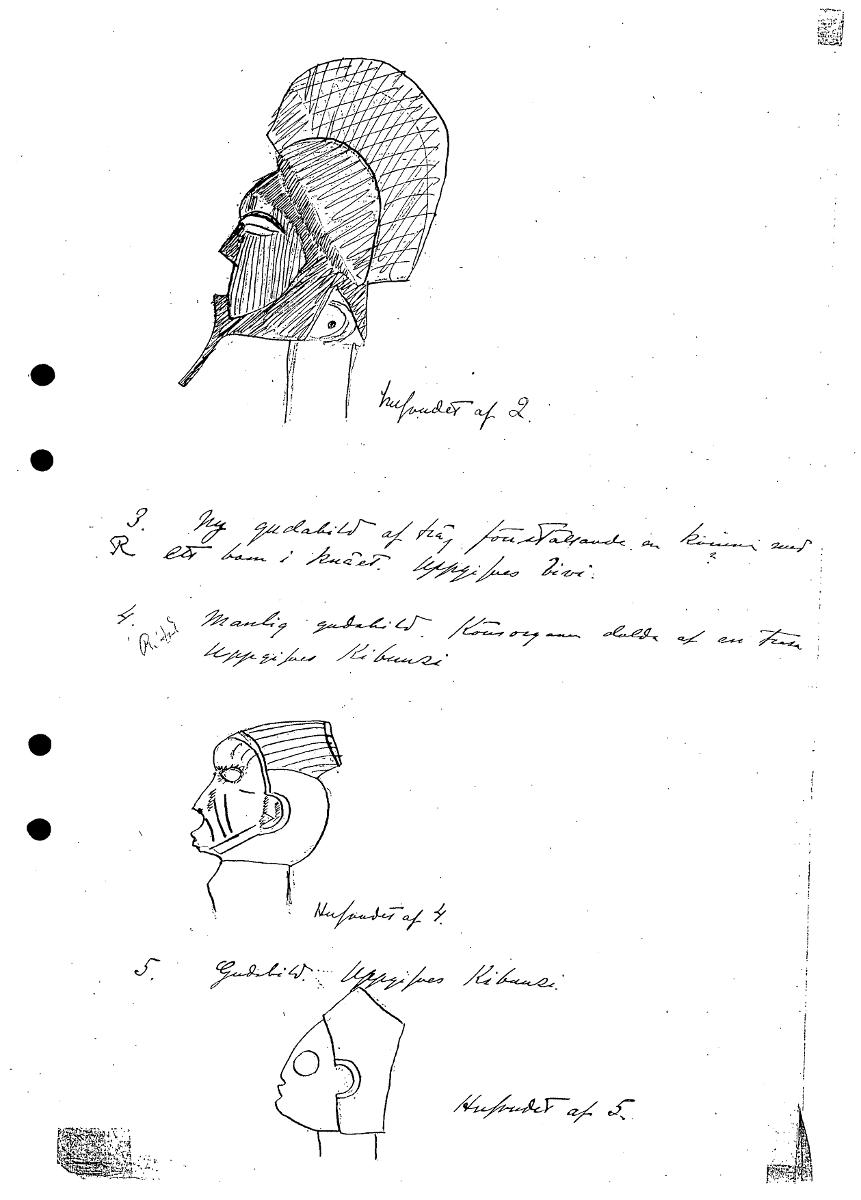 Hufvudet af 2.
3. Ny gudabild af trä, föreställande en kvinna med
?
R ett barn i knäet. Uppgifves Bivi.
4. Manlig gudabild. Könsorganen dolda af en trasa
Ritad
Uppgifves Kibunzi
Hufvudet af 4.
5. Gudabild. Uppgifves Kibunzi.
Hufvudet af 5.